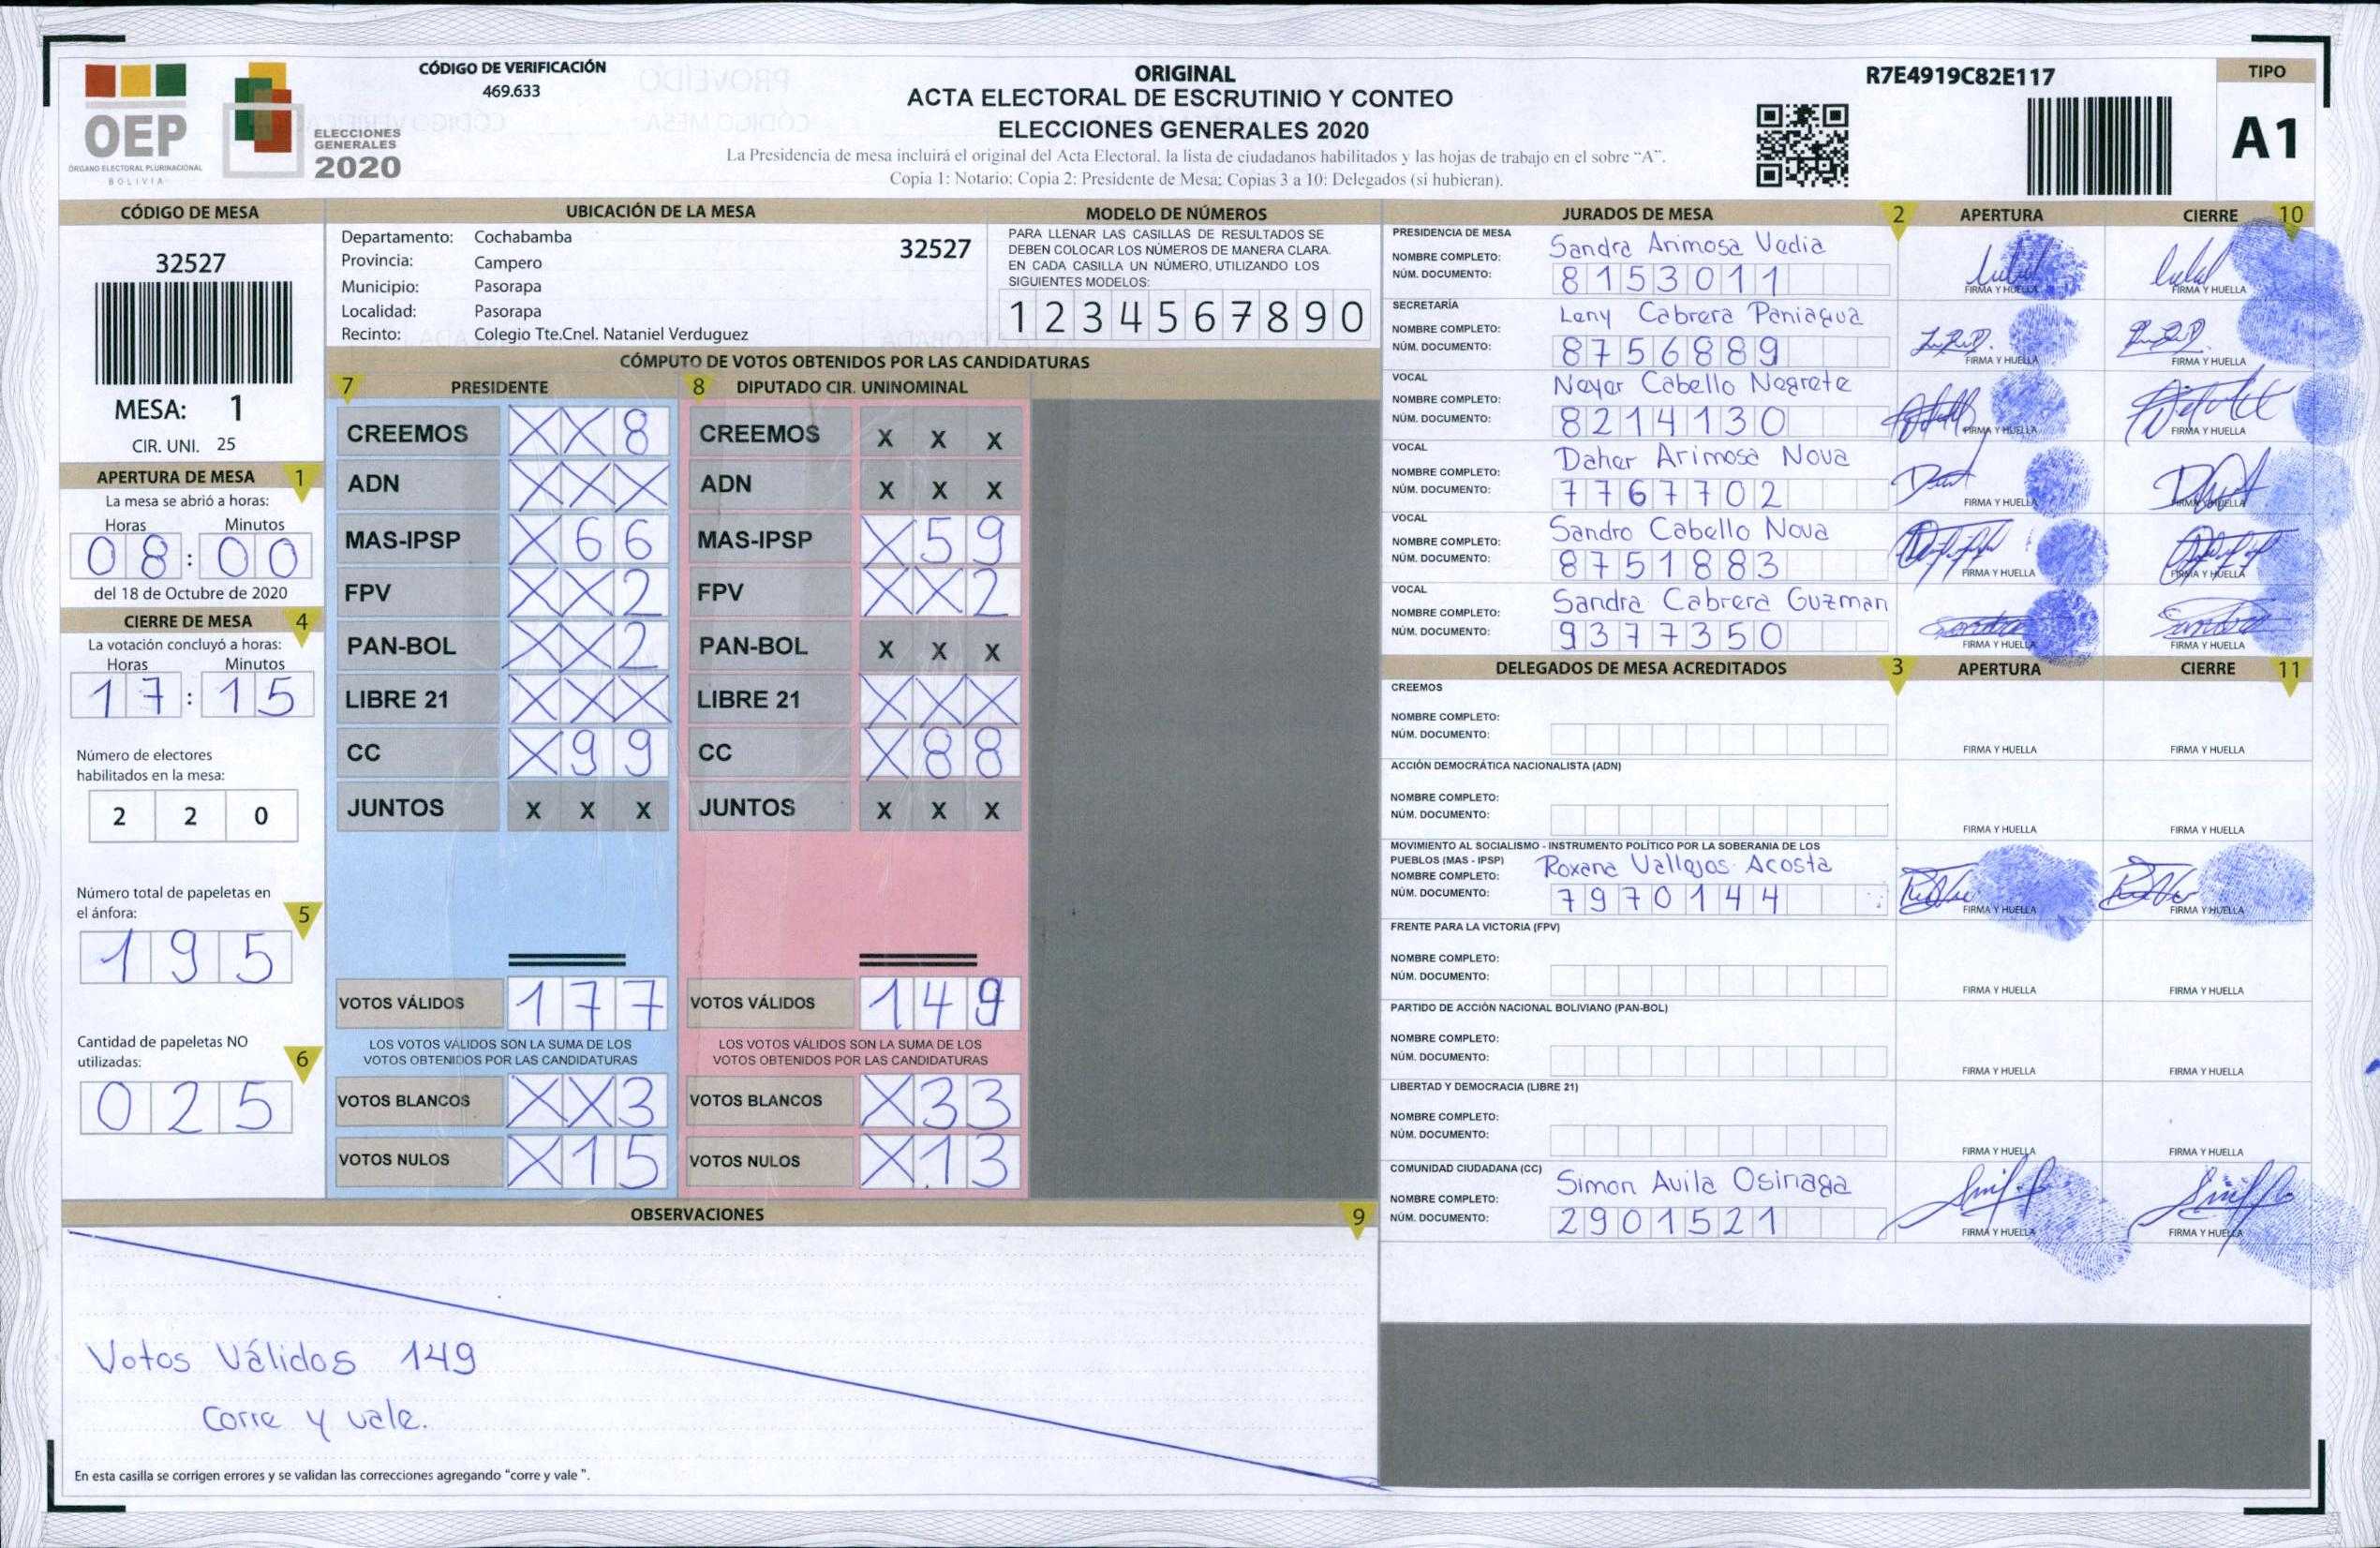 OEP
ÓRGANO ELECTORAL PLURINACIONAL
BOLIVIA
ELECCIONES
GENERALES
2020
CÓDIGO DE VERIFICACIÓN
469.633
ORIGINAL
ACTA ELECTORAL DE ESCRUTINIO Y CONTEO
ELECCIONES GENERALES 2020
La Presidencia de mesa incluirá el original del Acta Electoral, la lista de ciudadanos habilitados y las hojas de trabajo en el sobre "A".
Copia 1: Notario; Copia 2: Presidente de Mesa; Copias 3 a 10: Delegados (si hubieran).
R7E4919C82E117
TIPO
A1
CÓDIGO DE MESA
32527
MESA: 1
CIR. UNI. 25
APERTURA DE MESA 1
La mesa se abrió a horas:
Horas Minutos
08:00
del 18 de Octubre de 2020
CIERRE DE MESA 4
La votación concluyó a horas:
Horas Minutos
17:15
Número de electores
habilitados en la mesa:
2 2 0
Número total de papeletas en
el ánfora: 5
1 9 5
Cantidad de papeletas NO
utilizadas: 6
0 2 5
UBICACIÓN DE LA MESA
Departamento: Cochabamba 32527
Provincia: Campero
Municipio: Pasorapa
Localidad: Pasorapa
Recinto: Colegio Tte.Cnel. Nataniel Verduguez
MODELO DE NÚMEROS
PARA LLENAR LAS CASILLAS DE RESULTADOS SE
DEBEN COLOCAR LOS NÚMEROS DE MANERA CLARA.
EN CADA CASILLA UN NÚMERO, UTILIZANDO LOS
SIGUIENTES MODELOS:
1 2 3 4 5 6 7 8 9 0
CÓMPUTO DE VOTOS OBTENIDOS POR LAS CANDIDATURAS
7 PRESIDENTE
CREEMOS X X 8
ADN X X X
MAS-IPSP X 6 6
FPV X X 2
PAN-BOL X X 2
LIBRE 21 X X X
CC X 9 9
JUNTOS X X X
VOTOS VÁLIDOS 1 7 7
LOS VOTOS VÁLIDOS SON LA SUMA DE LOS
VOTOS OBTENIDOS POR LAS CANDIDATURAS
VOTOS BLANCOS X X 3
VOTOS NULOS X 1 5
8 DIPUTADO CIR. UNINOMINAL
CREEMOS X X X
ADN X X X
MAS-IPSP X 5 9
FPV X X 2
PAN-BOL X X X
LIBRE 21 X X X
CC X 8 8
JUNTOS X X X
VOTOS VÁLIDOS 1 4 9
LOS VOTOS VÁLIDOS SON LA SUMA DE LOS
VOTOS OBTENIDOS POR LAS CANDIDATURAS
VOTOS BLANCOS X 3 3
VOTOS NULOS X 1 3
OBSERVACIONES 9
Votos Válidos 149
Corre y vale.
En esta casilla se corrigen errores y se validan las correcciones agregando "corre y vale".
JURADOS DE MESA 2 APERTURA CIERRE 10
PRESIDENCIA DE MESA
NOMBRE COMPLETO: Sandra Arimosa Vedia
NÚM. DOCUMENTO: 8153011
FIRMA Y HUELLA FIRMA Y HUELLA
SECRETARÍA
NOMBRE COMPLETO: Leny Cabrera Paniagua
NÚM. DOCUMENTO: 8756889
FIRMA Y HUELLA FIRMA Y HUELLA
VOCAL
NOMBRE COMPLETO: Neyer Cabello Negrete
NÚM. DOCUMENTO: 8214130
FIRMA Y HUELLA FIRMA Y HUELLA
VOCAL
NOMBRE COMPLETO: Daher Arimosa Nova
NÚM. DOCUMENTO: 7767702
FIRMA Y HUELLA FIRMA Y HUELLA
VOCAL
NOMBRE COMPLETO: Sandro Cabello Nova
NÚM. DOCUMENTO: 8751883
FIRMA Y HUELLA FIRMA Y HUELLA
VOCAL
NOMBRE COMPLETO: Sandra Cabrera Guzman
NÚM. DOCUMENTO: 9377350
FIRMA Y HUELLA FIRMA Y HUELLA
DELEGADOS DE MESA ACREDITADOS 3 APERTURA CIERRE 11
CREEMOS
NOMBRE COMPLETO:
NÚM. DOCUMENTO:
FIRMA Y HUELLA FIRMA Y HUELLA
ACCIÓN DEMOCRÁTICA NACIONALISTA (ADN)
NOMBRE COMPLETO:
NÚM. DOCUMENTO:
FIRMA Y HUELLA FIRMA Y HUELLA
MOVIMIENTO AL SOCIALISMO - INSTRUMENTO POLÍTICO POR LA SOBERANIA DE LOS
PUEBLOS (MAS - IPSP)
NOMBRE COMPLETO: Roxana Vallejos Acosta
NÚM. DOCUMENTO: 7970144
FIRMA Y HUELLA FIRMA Y HUELLA
FRENTE PARA LA VICTORIA (FPV)
NOMBRE COMPLETO:
NÚM. DOCUMENTO:
FIRMA Y HUELLA FIRMA Y HUELLA
PARTIDO DE ACCIÓN NACIONAL BOLIVIANO (PAN-BOL)
NOMBRE COMPLETO:
NÚM. DOCUMENTO:
FIRMA Y HUELLA FIRMA Y HUELLA
LIBERTAD Y DEMOCRACIA (LIBRE 21)
NOMBRE COMPLETO:
NÚM. DOCUMENTO:
FIRMA Y HUELLA FIRMA Y HUELLA
COMUNIDAD CIUDADANA (CC)
NOMBRE COMPLETO: Simon Avila Osinaga
NÚM. DOCUMENTO: 2901521
FIRMA Y HUELLA FIRMA Y HUELLA